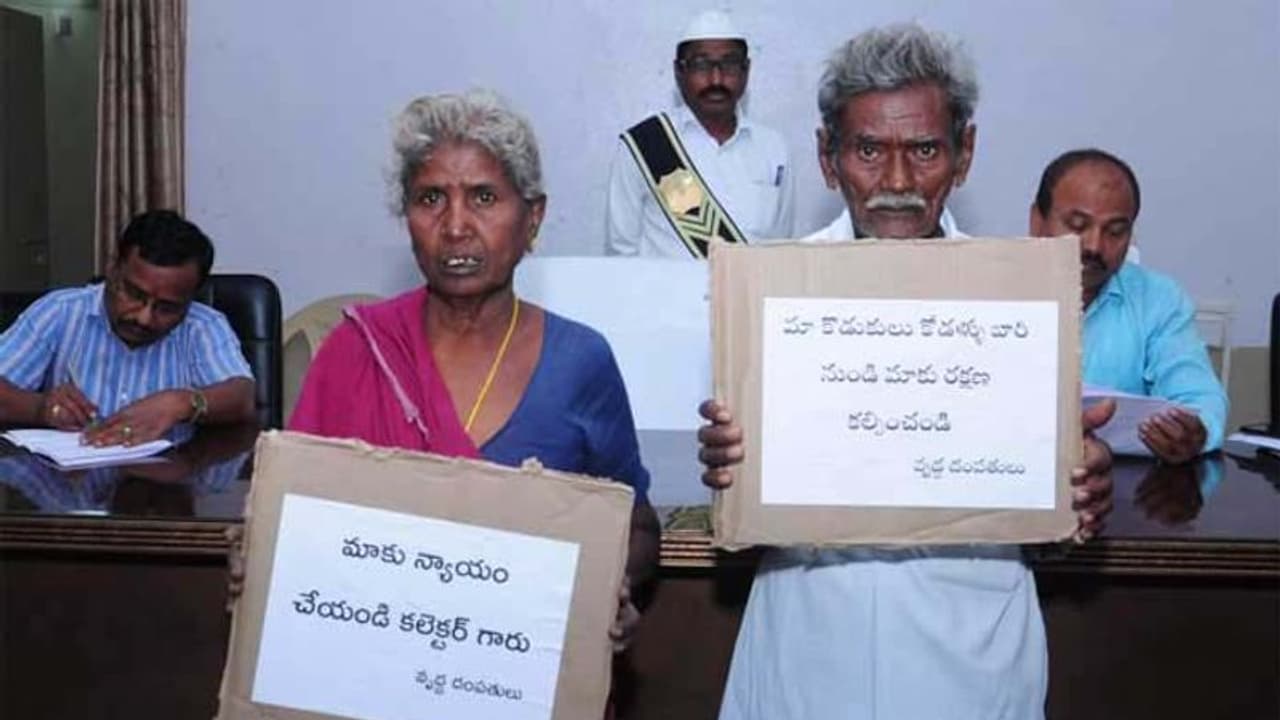 మాకు న్యాయం
చేయండి కలెక్టర్ గారు
వృద్ధ దంపతులు
మా కొడుకులు కోడళ్ళు వారి
నుండి మాకు రక్షణ
కల్పించండి
వృద్ధ దంపతులు